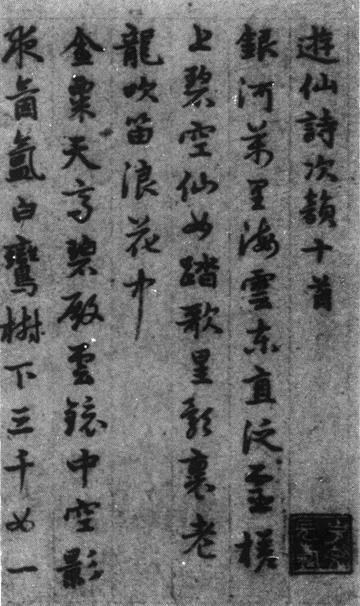 遊仙詩次韻十首
銀河萬里海雲東直泛槎
上碧空仙女踏歌星裏老
龍吹笛浪花中
金粟天高碧殿雲鏡中空影
夜氳白鸞樹下三千女一